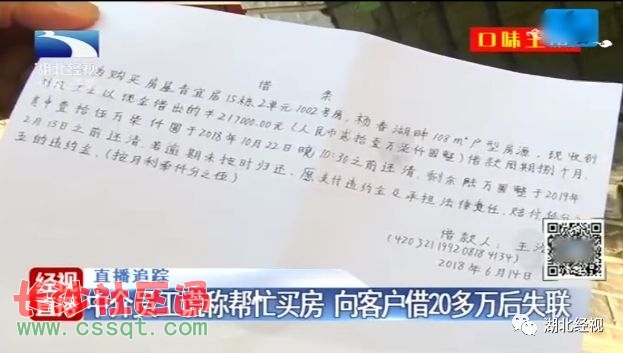 湖北经视
口味王
借条
为购买房屋香宜居15栋2单元1002号房,杨春湖畔108m²户型房源,现收到
女士以现金借出的¥217000.00元(人民币贰拾壹万柒仟圆整)借款周期捌个月.
中壹拾伍万柒仟圆于2018年10月22日晚10:30之前还清.剩余陆万圆整于2019年
2月13日之前还清.若逾期未按时归还,愿支付违约金及承担法律责任.赔付
五的违约金.(按月利率千分之伍)
借款人:王
2018年6月14日
经视
直播
直播追踪
中介员工谎称帮忙买房 向客户借20多万后失联
长沙社区通
www.cssqt.com
湖北经视